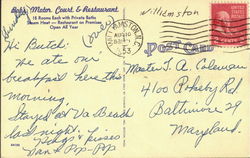 Motor Court & Restaurant
18 Rooms Each with Private Baths
Steam Heat — Restaurant on Premises
Open All Year
Williamston
POST CARD
Hi Butch:
We ate our
breakfast here this
morning.
Stayed at Va Beach
last night.
Hugs & kisses
Nan & Pop-Pop
Master T. A. Coleman
Baltimore 29
Maryland